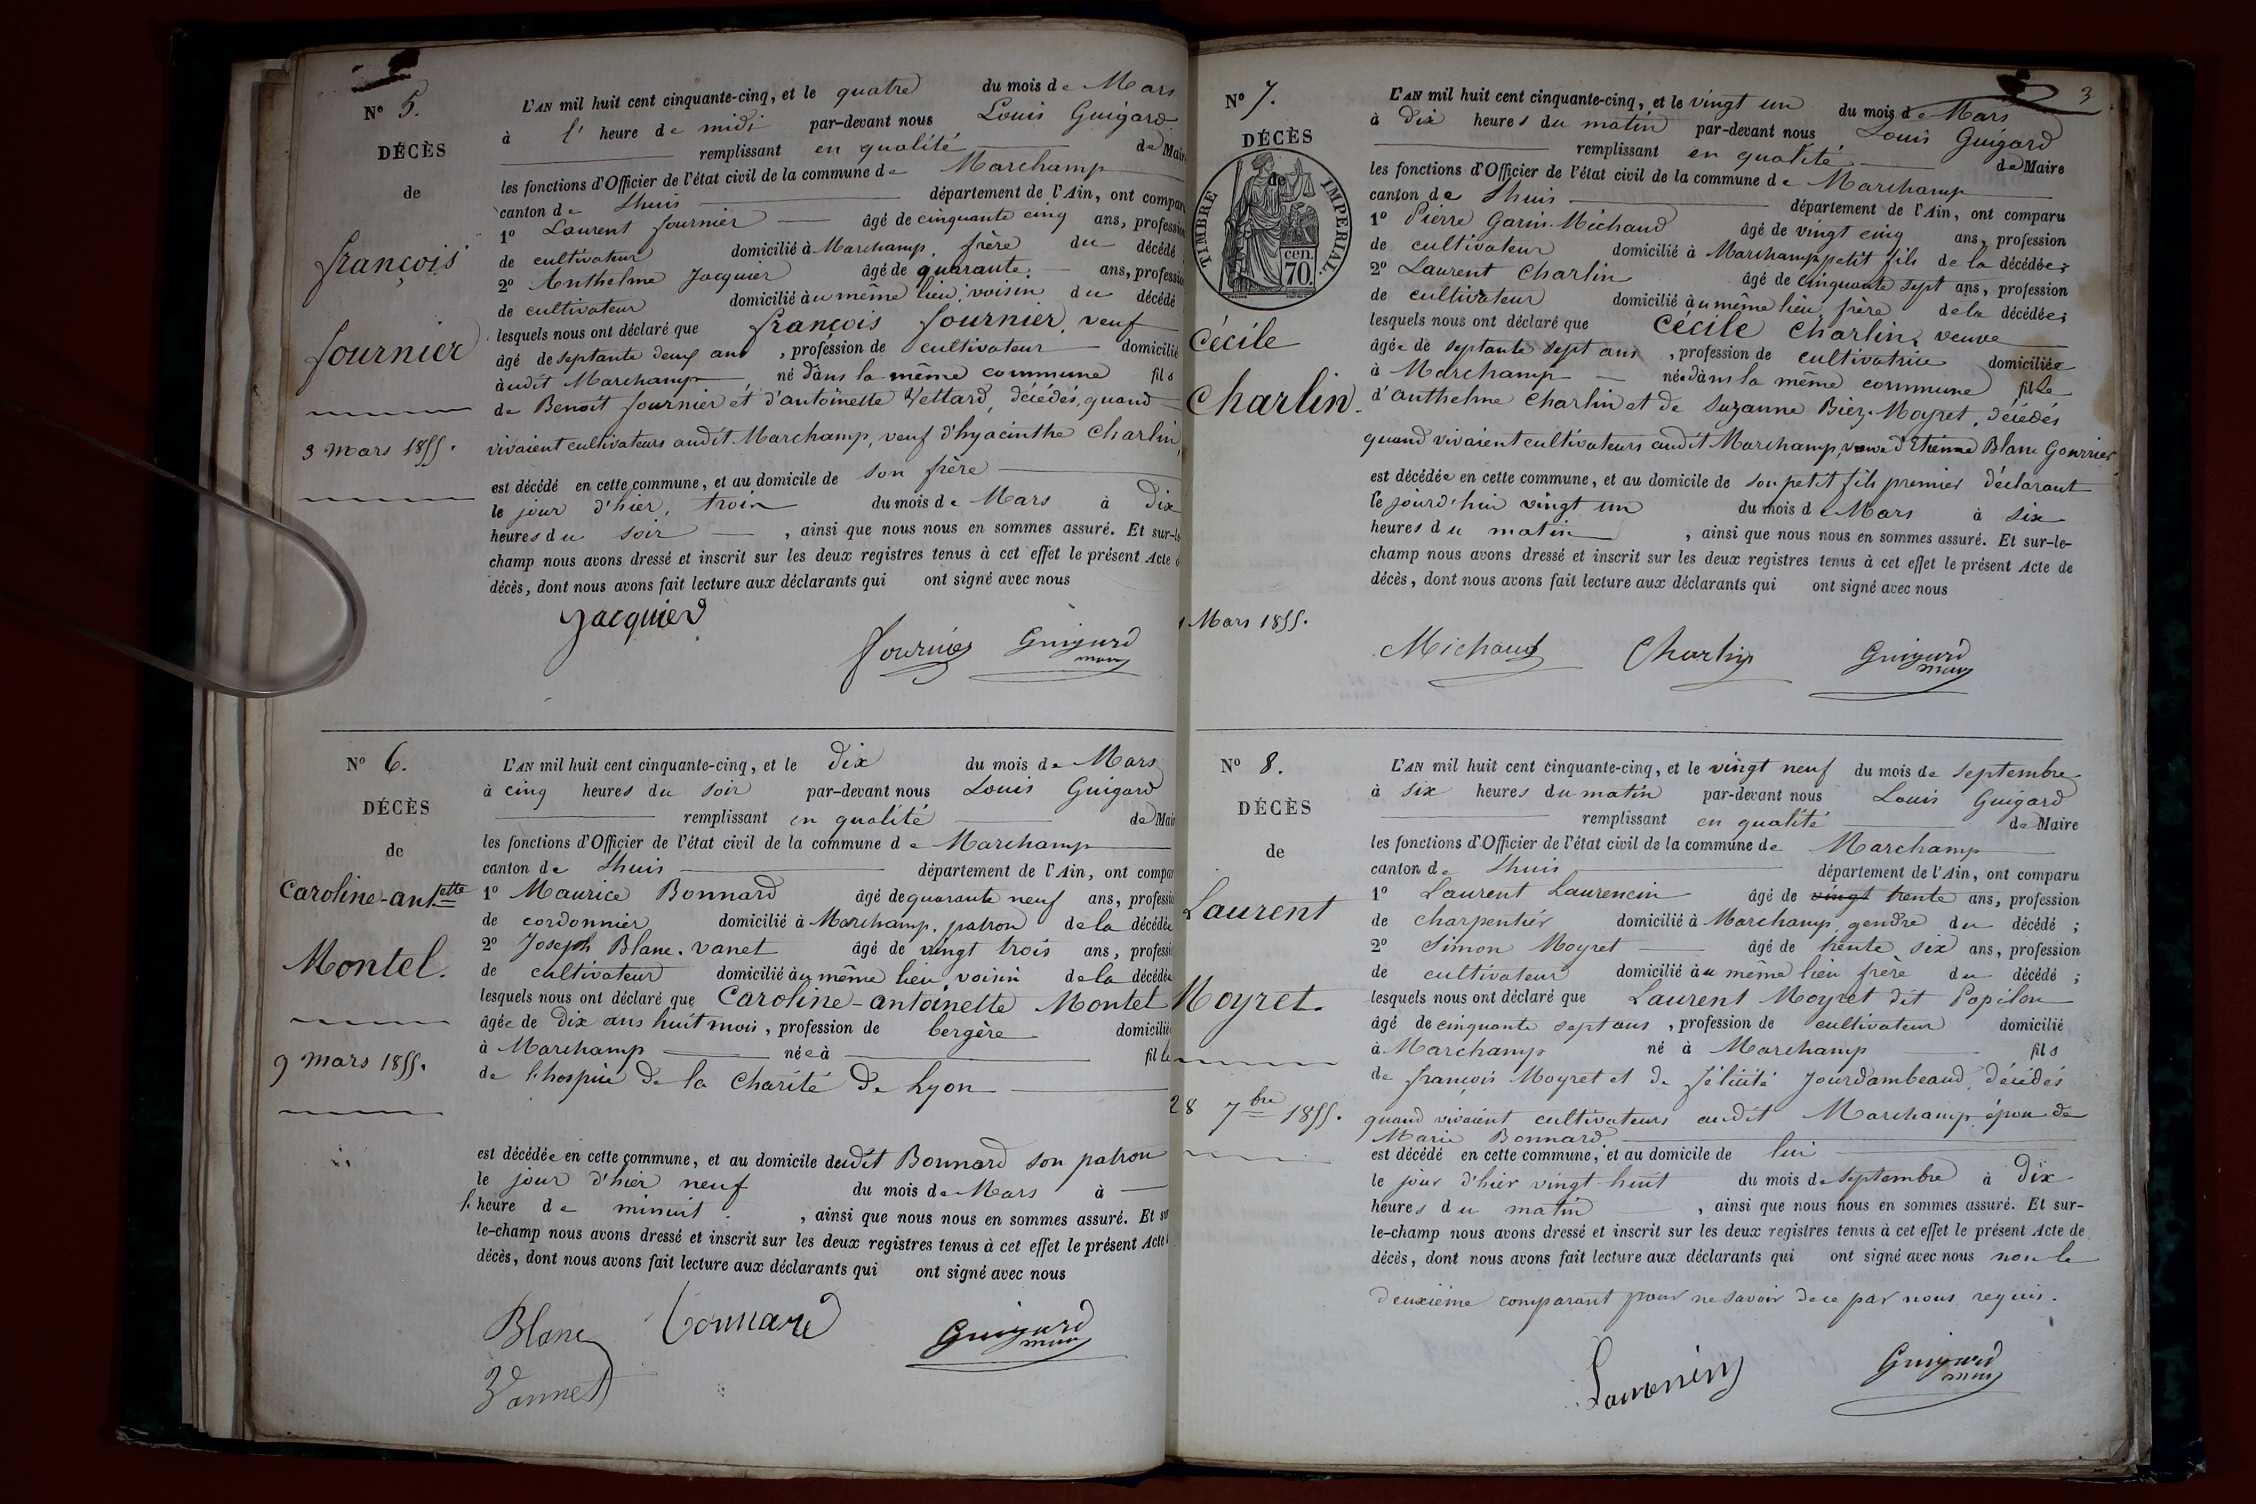 Nº 5.
DÉCÈS
de
françois
fournier
3 Mars 1855.
L'AN mil huit cent cinquante-cinq, et le quatre du mois de Mars
à l' heure de midi par-devant nous Louis Guigard
remplissant en qualité de Mair
les fonctions d'Officier de l'état civil de la commune de Marchamp
canton de Lhuis département de l'Ain, ont compar
1º Laurent fournier âgé de cinquante cinq ans, profession
de cultivateur domicilié à Marchamp, frère du décédé
2º Anthelme Jacquier âgé de quarante ans, profession
de cultivateur domicilié au même lieu, voisin du décédé
lesquels nous ont déclaré que françois fournier, veuf
âgé de septante deux ans, profession de cultivateur domicilié
audit Marchamp né dans la même commune fils
de Benoît fournier et d'antoinette Vettard, décédés, quand
vivaient cultivateurs audit Marchamp, veuf d'hyacinthe Charlin,
est décédé en cette commune, et au domicile de son frère
le jour d'hier, trois du mois de Mars à dix
heures du soir, ainsi que nous nous en sommes assuré. Et sur-le
champ nous avons dressé et inscrit sur les deux registres tenus à cet effet le présent Acte d
décès, dont nous avons fait lecture aux déclarants qui ont signé avec nous
Jacquier
fournier Guigard
maire
Nº 6.
DÉCÈS
de
Caroline-ant.ette
Montel.
9 Mars 1855.
L'AN mil huit cent cinquante-cinq, et le dix du mois de Mars
à cinq heures du soir par-devant nous Louis Guigard
remplissant en qualité de Mair
les fonctions d'Officier de l'état civil de la commune de Marchamp
canton de Lhuis département de l'Ain, ont compar
1º Maurice Bonnard âgé de quarante neuf ans, professio
de cordonnier domicilié à Marchamp, patron de la décédée
2º Joseph Blanc-vanet âgé de vingt trois ans, professi
de cultivateur domicilié au même lieu, voisin de la décédée
lesquels nous ont déclaré que Caroline-antoinette Montel
âgée de dix ans huit mois, profession de bergère domiciliée
à Marchamp née à fille
de l'hospice de la Charité de Lyon
est décédée en cette commune, et au domicile dudit Bonnard son patron
le jour d'hier neuf du mois de Mars à
l'heure de minuit, ainsi que nous nous en sommes assuré. Et sur
le-champ nous avons dressé et inscrit sur les deux registres tenus à cet effet le présent Acte
décès, dont nous avons fait lecture aux déclarants qui ont signé avec nous
Blanc Bonnard Guigard
maire
Vannet
3
Nº 7.
DÉCÈS
de
TIMBRE IMPERIAL
cen.
70.
Cécile
Charlin.
Mars 1855.
L'AN mil huit cent cinquante-cinq, et le vingt un du mois de Mars
à dix heures du matin par-devant nous Louis Guigard
remplissant en qualité de Maire
les fonctions d'Officier de l'état civil de la commune de Marchamp
canton de Lhuis département de l'Ain, ont comparu
1º Pierre Garin-Michaud âgé de vingt cinq ans, profession
de cultivateur domicilié à Marchamp petit fils de la décédée;
2º Laurent Charlin âgé de cinquante sept ans, profession
de cultivateur domicilié au même lieu, frère de la décédée;
lesquels nous ont déclaré que Cécile Charlin, veuve
âgée de septante sept ans, profession de cultivatrice domiciliée
à Marchamp née dans la même commune fille
d'anthelme Charlin et de Suzanne Biez-Moyret, décédés
quand vivaient cultivateurs audit Marchamp, veuve d'Etienne Blanc Gonnier
est décédée en cette commune, et au domicile de son petit fils premier déclarant
le jourd'hui vingt un du mois de Mars à six
heures du matin, ainsi que nous nous en sommes assuré. Et sur-le-
champ nous avons dressé et inscrit sur les deux registres tenus à cet effet le présent Acte de
décès, dont nous avons fait lecture aux déclarants qui ont signé avec nous
Michaud Charlin Guigard
maire
Nº 8.
DÉCÈS
de
Laurent
Moyret.
28 7bre 1855.
L'AN mil huit cent cinquante-cinq, et le vingt neuf du mois de septembre
à six heures du matin par-devant nous Louis Guigard
remplissant en qualité de Maire
les fonctions d'Officier de l'état civil de la commune de Marchamp
canton de Lhuis département de l'Ain, ont comparu
1º Laurent Laurencin âgé de vingt trente ans, profession
de charpentier domicilié à Marchamp, gendre du décédé;
2º Simon Moyret âgé de trente six ans, profession
de cultivateur domicilié au même lieu frère du décédé;
lesquels nous ont déclaré que Laurent Moyret dit Popilon
âgé de cinquante sept ans, profession de cultivateur domicilié
à Marchamp né à Marchamp fils
de françois Moyret et de félicité Jourdambeaud, décédés
quand vivaient cultivateurs audit Marchamp, époux de
Marie Bonnard
est décédé en cette commune, et au domicile de lui
le jour d'hier vingt-huit du mois de septembre à dix
heures du matin, ainsi que nous nous en sommes assuré. Et sur-
le-champ nous avons dressé et inscrit sur les deux registres tenus à cet effet le présent Acte de
décès, dont nous avons fait lecture aux déclarants qui ont signé avec nous non le
deuxième comparant pour ne savoir de ce par nous requis.
Laurencin Guigard
maire